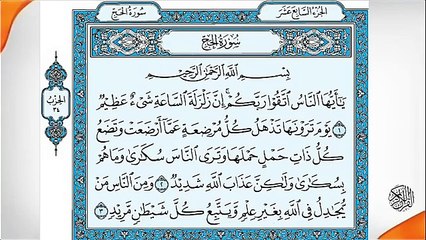 سُورَةُ الْحَجِّ
الجُزْءُ السَّابِعَ عَشَرَ
سُورَةُ الْحَجِّ
بِسْمِ اللَّهِ الرَّحْمَٰنِ الرَّحِيمِ
يَٰٓأَيُّهَا النَّاسُ اتَّقُوا رَبَّكُمْ ۚ إِنَّ زَلْزَلَةَ السَّاعَةِ شَيْءٌ عَظِيمٌ
١ يَوْمَ تَرَوْنَهَا تَذْهَلُ كُلُّ مُرْضِعَةٍ عَمَّا أَرْضَعَتْ وَتَضَعُ
كُلُّ ذَاتِ حَمْلٍ حَمْلَهَا وَتَرَى النَّاسَ سُكَٰرَىٰ وَمَا هُم
بِسُكَٰرَىٰ وَلَٰكِنَّ عَذَابَ اللَّهِ شَدِيدٌ ٢ وَمِنَ النَّاسِ مَن
يُجَٰدِلُ فِي اللَّهِ بِغَيْرِ عِلْمٍ وَيَتَّبِعُ كُلَّ شَيْطَٰنٍ مَّرِيدٍ ٣
الحِزْبُ
٣٤
القرآن الكريم